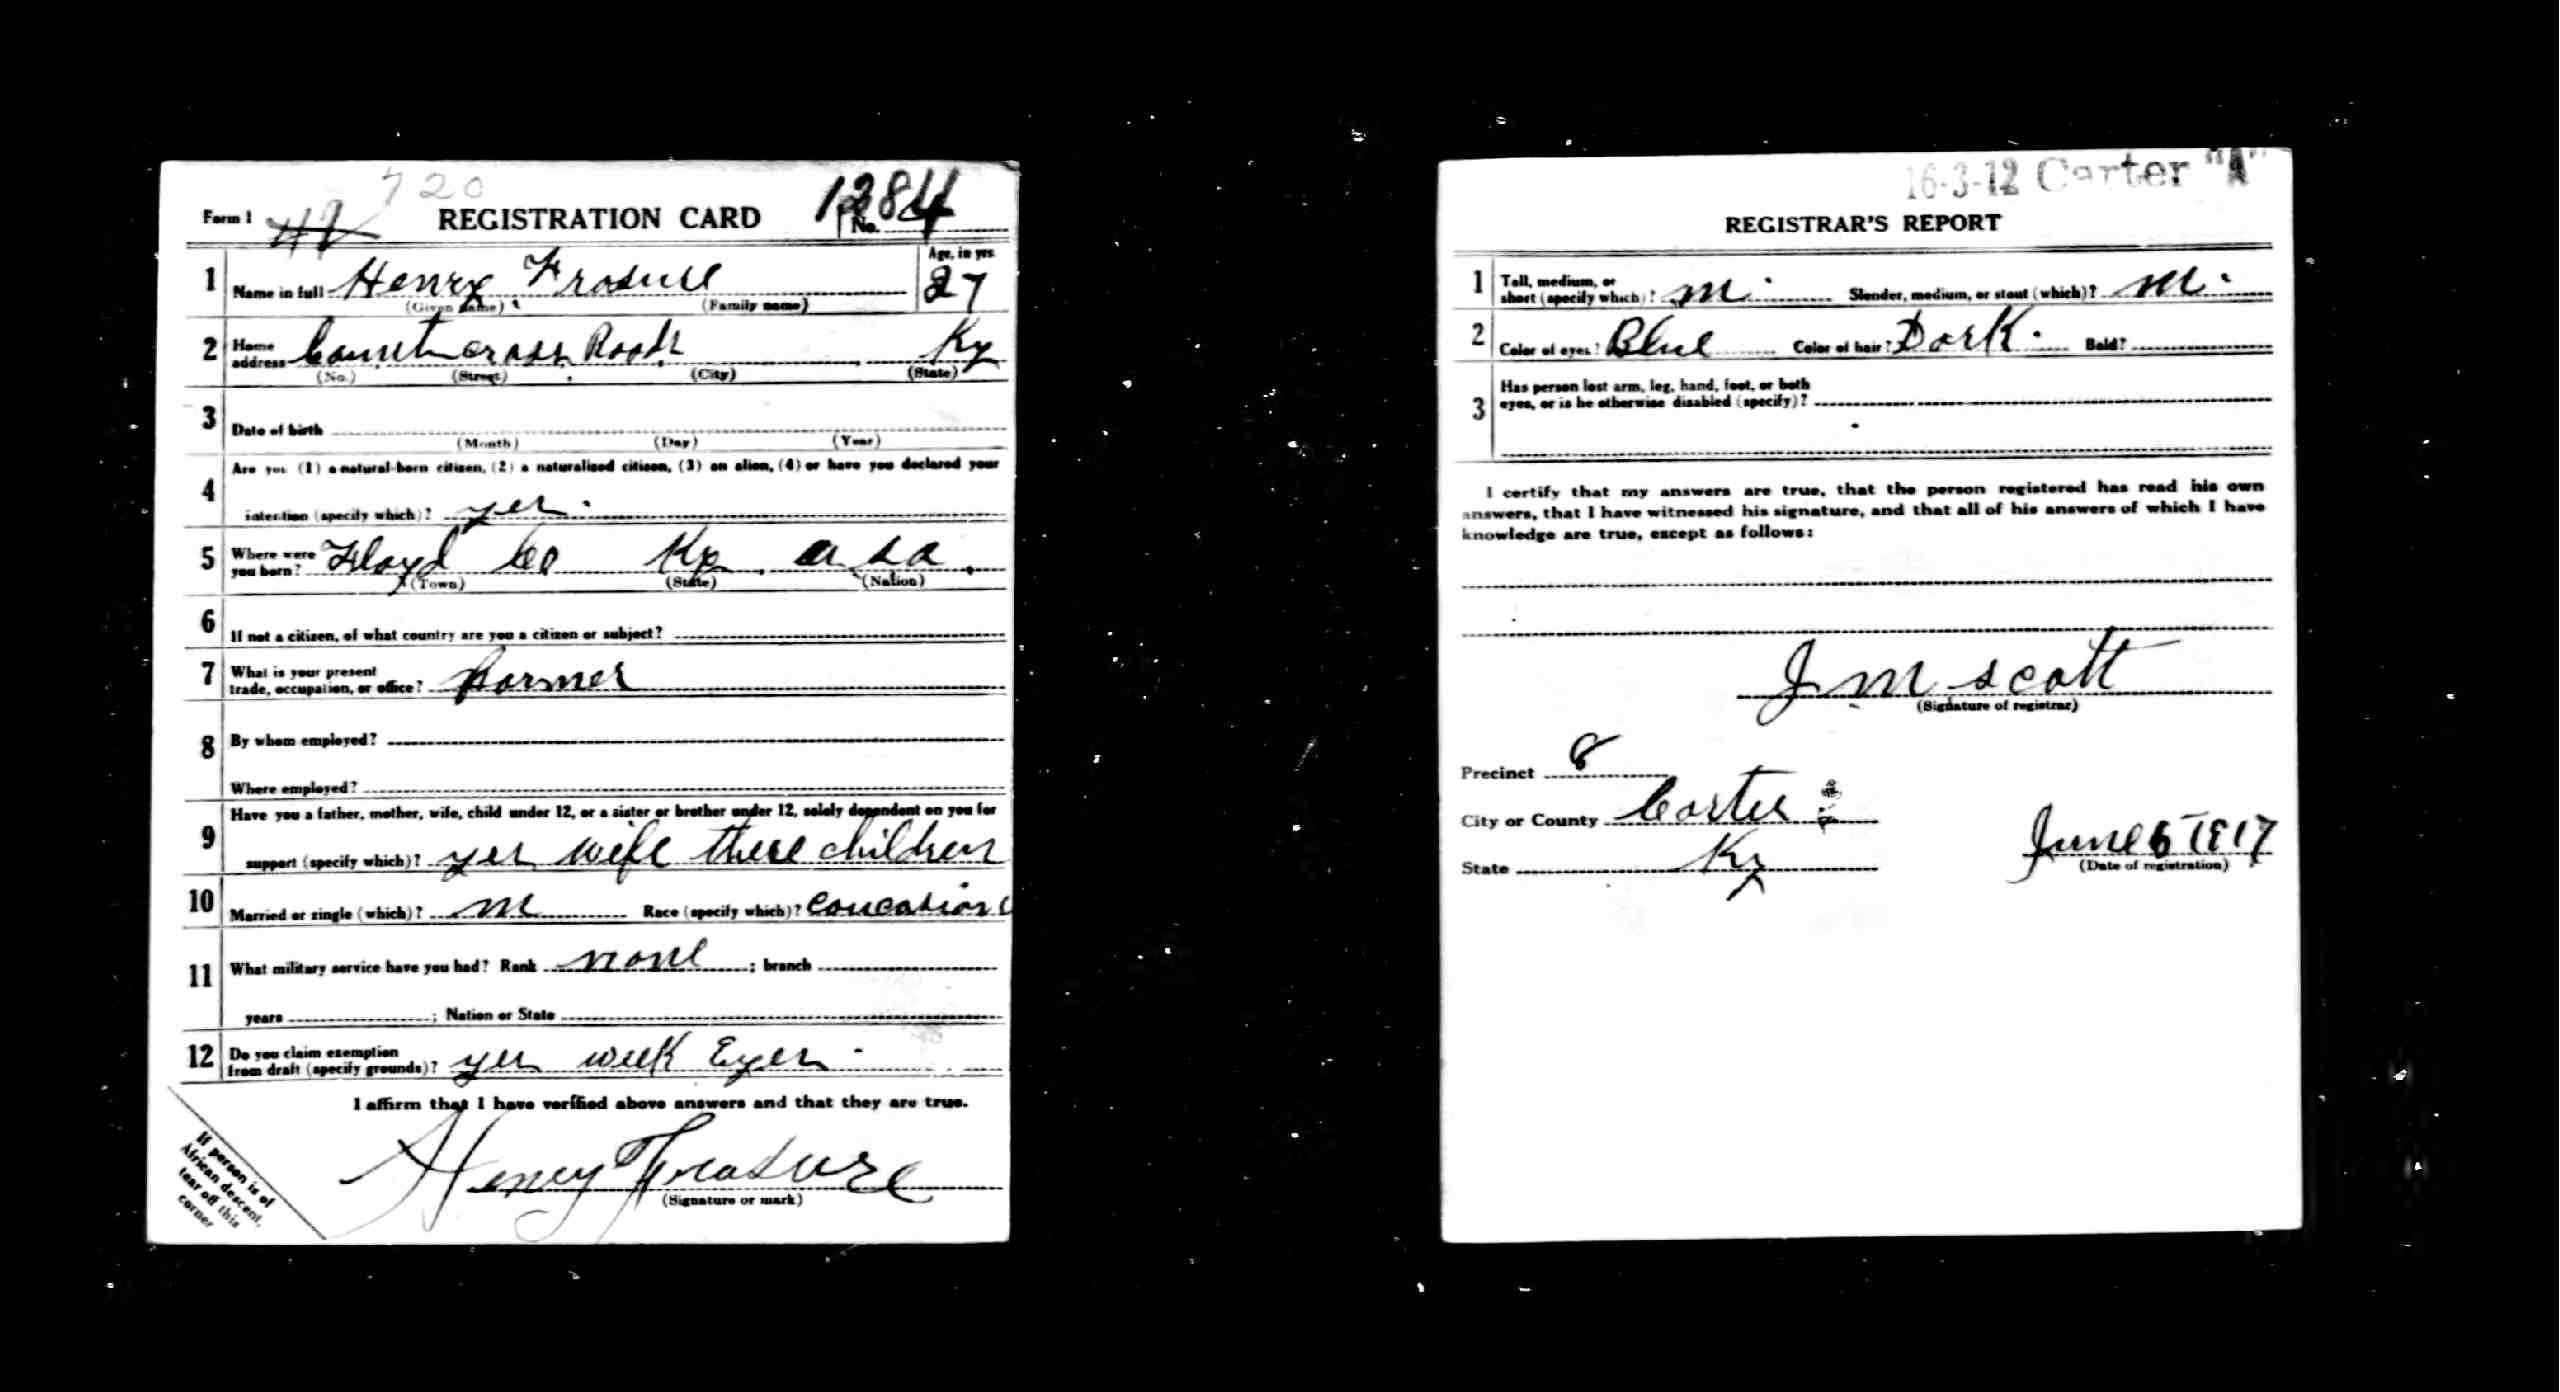 720
Form 1 REGISTRATION CARD No. 1284
1 Name in full Henry Frasure Age, in yrs. 27
(Given name) (Family name)
2 Home address Counts cross Roads Ky
(No.) (Street) (City) (State)
3 Date of birth
(Month) (Day) (Year)
4 Are you (1) a natural-born citizen, (2) a naturalized citizen, (3) an alien, (4) or have you declared your
intention (specify which)? yes.
5 Where were you born? Floyd Co Ky. u s a.
(Town) (State) (Nation)
6 If not a citizen, of what country are you a citizen or subject?
7 What is your present
trade, occupation, or office? Farmer
8 By whom employed?
Where employed?
9 Have you a father, mother, wife, child under 12, or a sister or brother under 12, solely dependent on you for
support (specify which)? yes wife three children
10 Married or single (which)? M Race (specify which)?
11 What military service have you had? Rank none ; branch
years ; Nation or State
12 Do you claim exemption
from draft (specify grounds)? yes week Eyes.
I affirm that I have verified above answers and that they are true.
Henry Frasure
(Signature or mark)
If person is of
African descent,
tear off this
corner
16-3-12 Carter "A"
REGISTRAR'S REPORT
1 Tall, medium, or
short (specify which)? M. Slender, medium, or stout (which)? M.
2 Color of eyes? Blue Color of hair? Dark. Bald?
3 Has person lost arm, leg, hand, foot, or both
eyes, or is he otherwise disabled (specify)?
I certify that my answers are true, that the person registered has read his own
answers, that I have witnessed his signature, and that all of his answers of which I have
knowledge are true, except as follows:
J M Scott
(Signature of registrar)
Precinct 8
City or County Carter
State Ky
June 5 1917
(Date of registration)